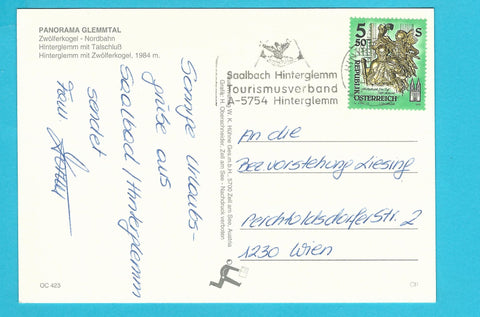 PANORAMA GLEMMTAL
Zwölferkogel - Nordbahn
Hinterglemm mit Talschluß
Hinterglemm mit Zwölferkogel, 1984 m.
Sonnige Urlaubs-
grüße aus
Saalbach/Hinterglemm
sendet
Fam.
W. K. Hühne Ges.m.b.H., 5700 Zell am See, Austria
Grafik: H. Oberschneider, Zell am See - Nachdruck verboten
Saalbach Hinterglemm
Tourismusverband
A-5754 Hinterglemm
5 50 S
REPUBLIK
ÖSTERREICH
An die
Bezvorstehung Liesing
Perchtoldsdorfer Str. 2
1230 Wien
OC 423